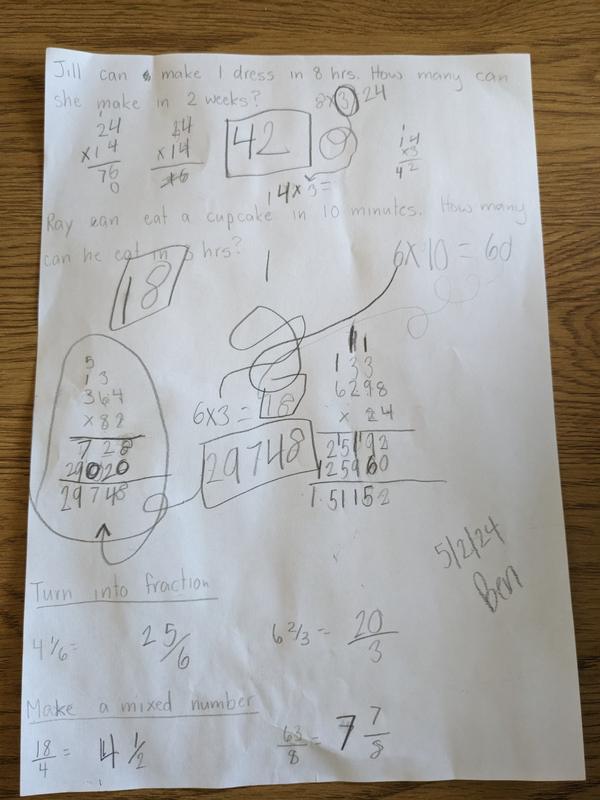 Jill can make 1 dress in 8 hrs. How many can
she make in 2 weeks? 8x3/24
24
x14
76
0
14
x14
42
14
x3
42
14x3=
Ray can eat a cupcake in 10 minutes. How many
can he eat in 3 hrs?
18
1
6x10=60
5
13
364
x82
728
29020
29748
6x3=18
29748
11
133
6298
x 24
25192
125960
151152
5/2/24
Ben
Turn into fraction
4 1/6= 25/6
6 2/3= 20/3
Make a mixed number
18/4= 4 1/2
63/8= 7 7/8